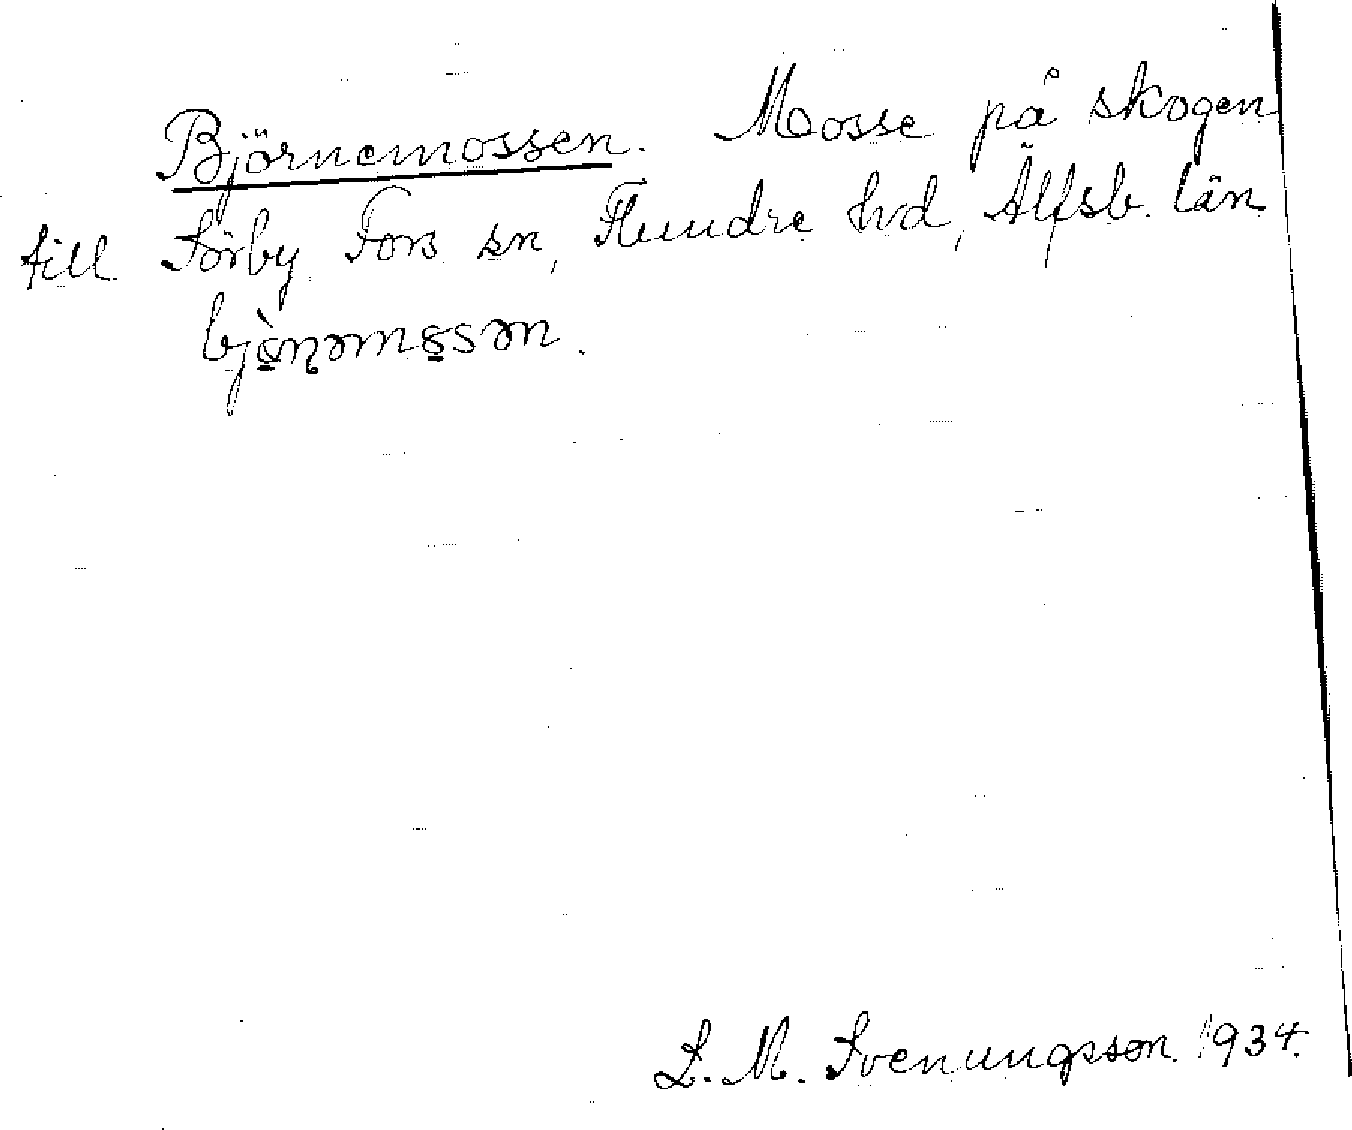 Björnemossen. Mosse på skogen
till Sörby Fors sn, Flundre hd, Älfsb. län
bjò̱ɳəmo̱sən.
L. M. Svenungsson 1934.